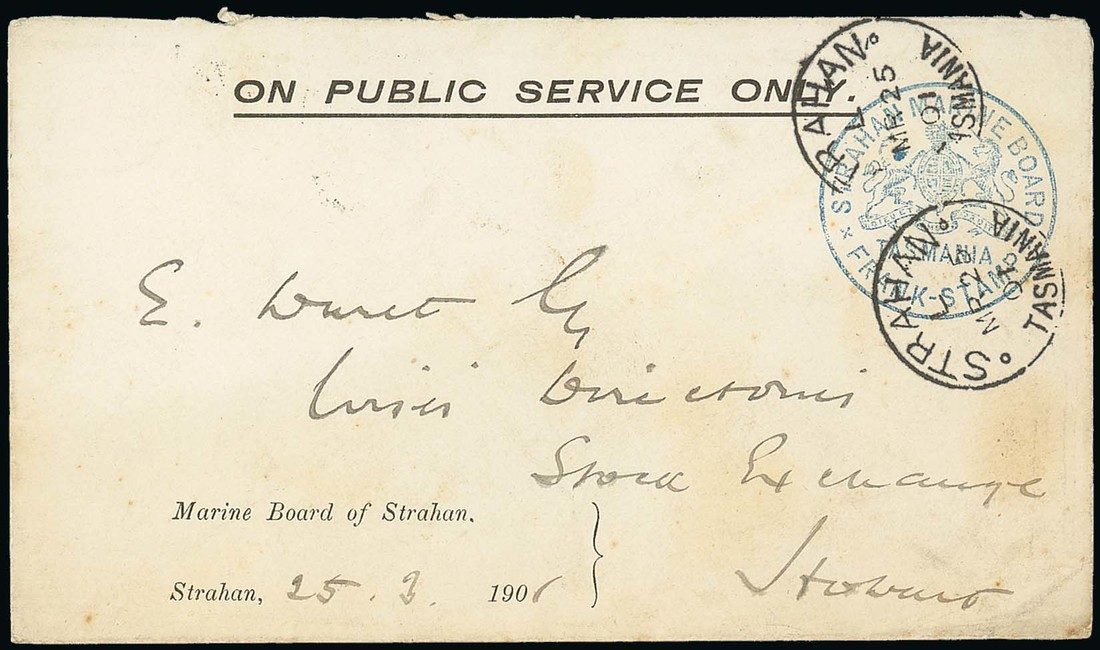 ON PUBLIC SERVICE ONLY.
STRAHAN TASMANIA
L
MR 25
01
STRAHAN MARINE BOARD
TASMANIA
FRANK-STAMP
STRAHAN TASMANIA
L
MR 25
01
E.
Stock Exchange
Hobart
Marine Board of Strahan.
Strahan, 25.3.1901